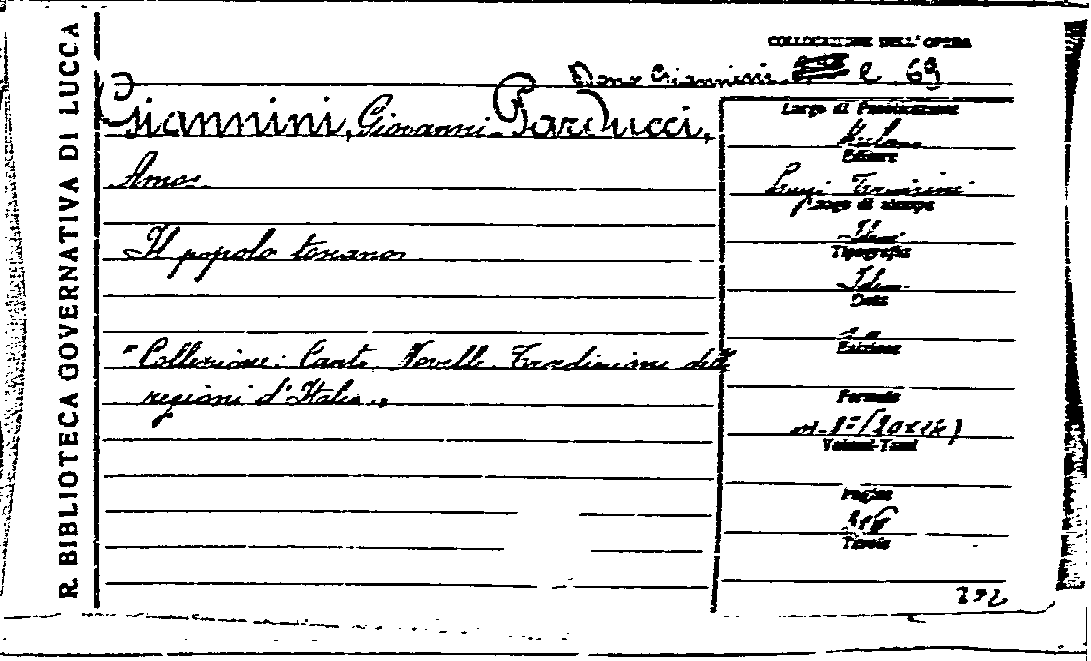 R. BIBLIOTECA GOVERNATIVA DI LUCCA
COLLOCAZIONE DELL'OPERA
Dono Giannini e 69
Giannini, Giovanni - Parducci,
Amos.
Il popolo toscano
"Collezione: Canti Novelle Tradizioni delle
regioni d'Italia"
Luogo di Pubblicazione
Milano
Editore
Luigi Trevisini
Luogo di stampa
Idem
Tipografia
Idem
Data
Edizione
Formato
Volumi-Tomi
Pagine
Tavole
292